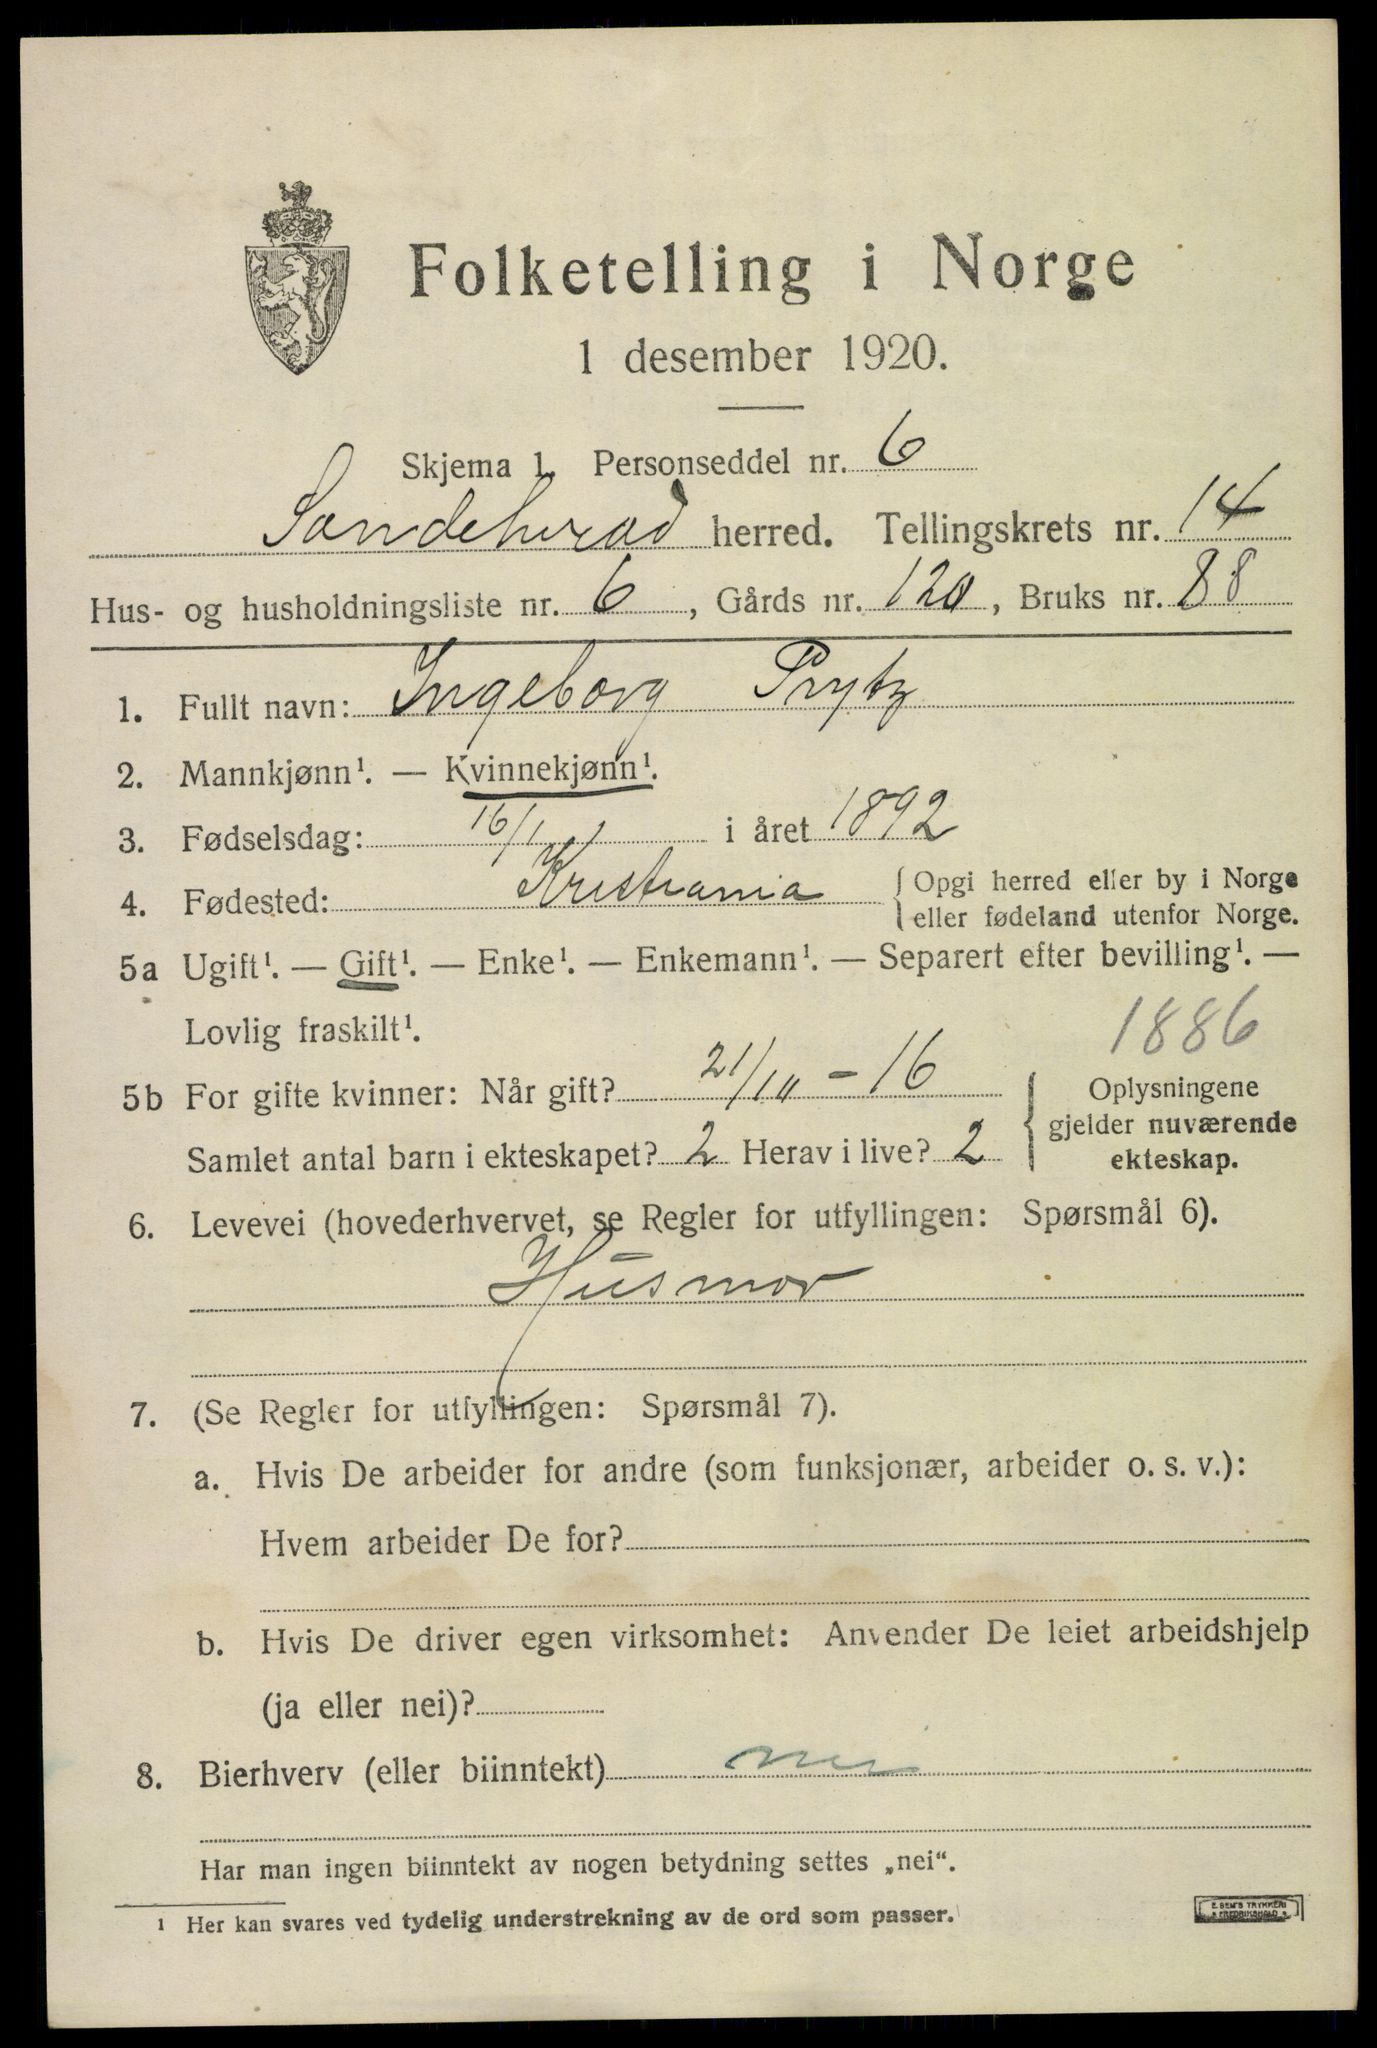 Folketelling i Norge
1 desember 1920.
Skjema 1. Personseddel nr. 6
Sandeherad herred. Tellingskrets nr. 14
Hus- og husholdningsliste nr. 6, Gårds nr. 120, Bruks nr. 88
1. Fullt navn: Ingeborg Prytz
2. Mannkjønn¹. — Kvinnekjønn¹.
3. Fødselsdag: 16/1 i året 1892
4. Fødested: Kristiania { Opgi herred eller by i Norge
eller fødeland utenfor Norge.
5a Ugift¹. — Gift¹. — Enke¹. — Enkemann¹. — Separert efter bevilling¹. —
Lovlig fraskilt¹.
1886
5b For gifte kvinner: Når gift? 21/10 - 16
Samlet antal barn i ekteskapet? 2 Herav i live? 2
{ Oplysningene
gjelder nuværende
ekteskap.
6. Levevei (hovederhvervet, se Regler for utfyllingen: Spørsmål 6).
Husmor
7. (Se Regler for utfyllingen: Spørsmål 7).
a. Hvis De arbeider for andre (som funksjonær, arbeider o. s. v.):
Hvem arbeider De for?
b. Hvis De driver egen virksomhet: Anvender De leiet arbeidshjelp
(ja eller nei)?
8. Bierhverv (eller biinntekt) nei
Har man ingen biinntekt av nogen betydning settes „nei“.
¹ Her kan svares ved tydelig understrekning av de ord som passer.
E. SEM'S TRYKKERI
FREDRIKSHALD